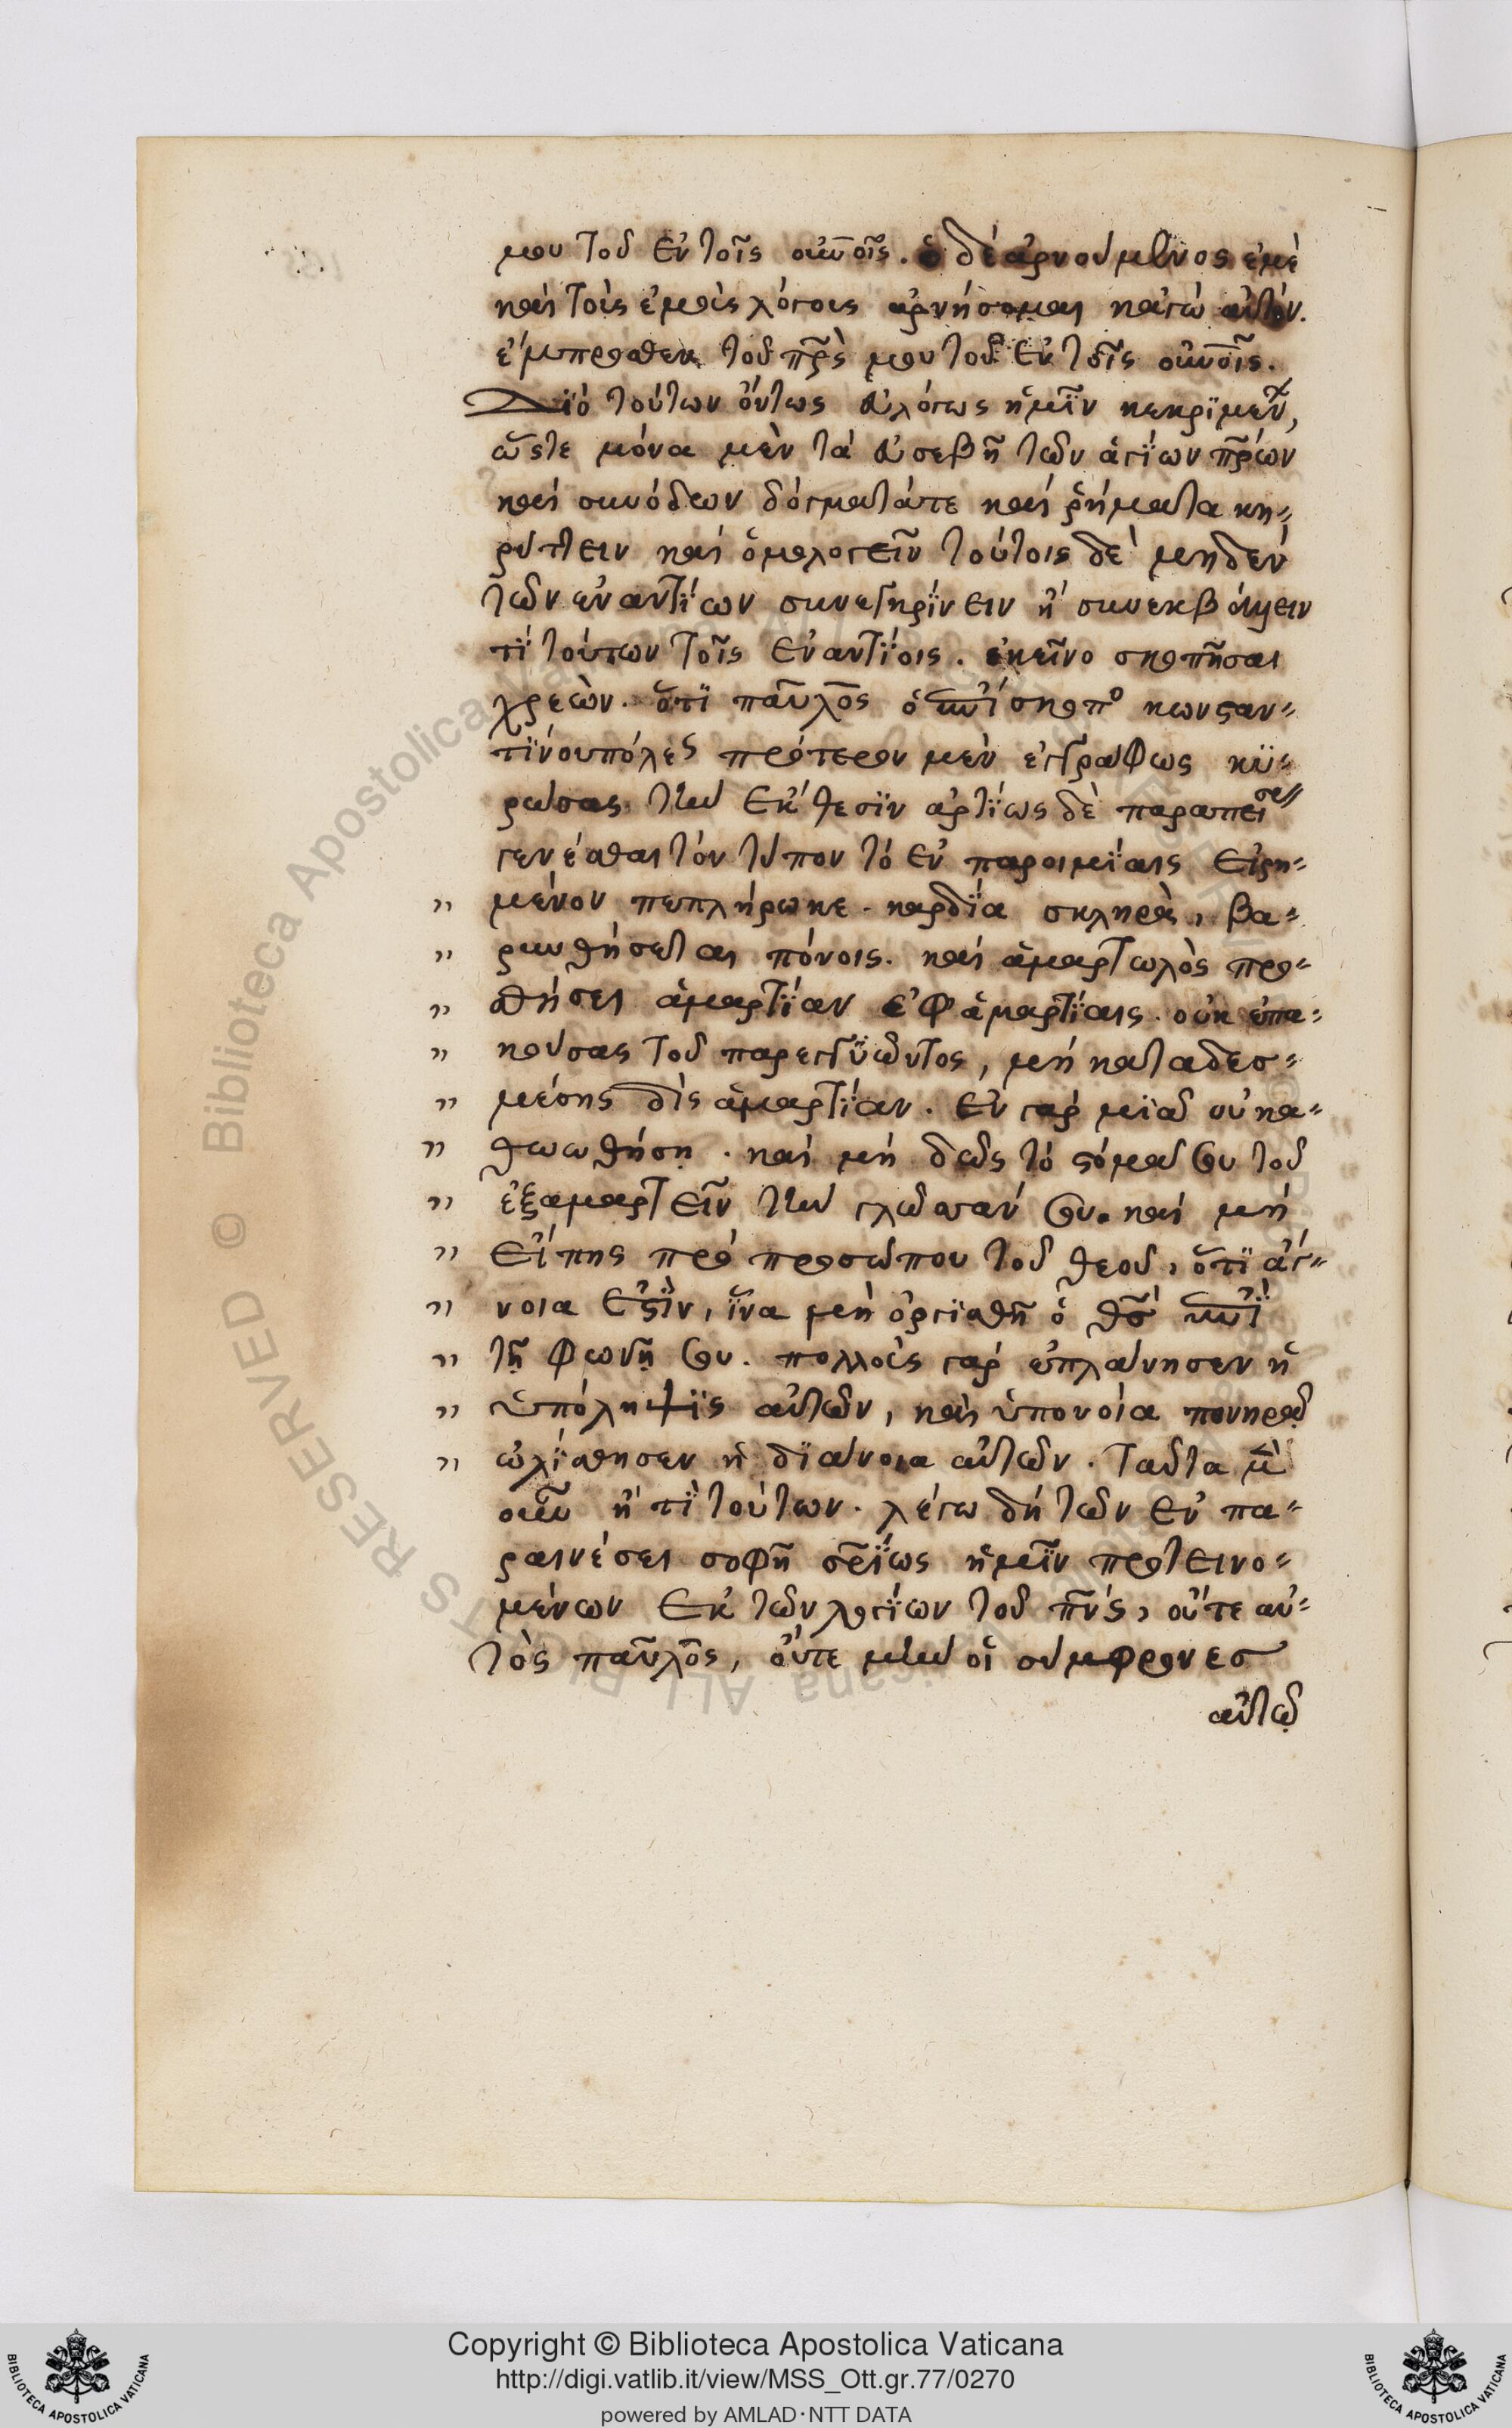 μου τοῦ ἐν τοῖς οὐνοῖς. ὁ δὲ ἀρνούμενος ἐμὲ
καὶ τοὺς ἐμοὺς λόγους ἀρνήσομαι κἀγὼ αὐτόν.
ἔμπροσθεν τοῦ πρς μου τοῦ ἐν τοῖς οὐνοῖς.
Διὸ τούτων ὄντως εὐλόγως ἡμῖν κεκριμεν,
ὥστε μόνα μὲν τὰ εὐσεβῆ τῶν ἁγίων πρων
καὶ συνόδων δόγματάτε καὶ ῥήματα κη-
ρύττειν καὶ ὁμολογεῖν τούτοις δὲ μηδὲν
τῶν ἐναντίων συνεγκρίνειν ἢ συνεκβάλλειν
τὶ τούτων τοῖς ἐναντίοις. ἐκεῖνο σκοπῆσαι
χρεών. ὅτι παῦλος ὁ ἐπίσκοπο κωνσταν-
τινουπόλες πρότερον μὲν ἐγγράφως κϋ-
ρώσας τὴν ἔκθεσιν ἀρτίως δὲ παραπεισ
γενέσθαι τὸν τύπον τὸ ἐν παροιμίαις εἰρη-
" μένον πεπλήρωκε. καρδία σκληρὰ, βα-
" ρυνθήσεται πόνοις. καὶ ἁμαρτωλὸς προ-
" σθήσει ἁμαρτίαν ἐφ ἁμαρτίαις. οὐκ ὑπα-
" κούσας τοῦ παρεγγυῶντος, μὴ καταδεσ-
" μέσης δὶς ἁμαρτίαν. ἐν γὰρ μιᾷ οὐκ α-
" θωωθήσῃ. καὶ μὴ δῶς τὸ στόμα σου τοῦ
" ἐξαμαρτεῖν τὴν γλῶσσάν σου. καὶ μὴ
" εἴπῃς πρὸ προσώπου τοῦ θεοῦ, ὅτι ἄγ-
" νοια ἐστὶν, ἵνα μὴ ὀργισθῇ ὁ θς ἐπὶ
" τῇ φωνῇ σου. πολλοὺς γὰρ ἐπλάνησεν ἡ
" ὑπόληψις αὐτῶν, καὶ ὑπονοία πονηρᾷ
" ὠλίσθησεν ἡ διάνοια αὐτῶν. Ταῦτα μὲν
οὖν ἢ τὶ τούτων. λέγω δὴ τῶν ἐν πα-
ραινέσει σοφῇ σρίως ἡμῖν προτεινο-
μένων ἐκ τῶν λογίων τοῦ πνς, οὔτε αὐ-
τὸς παῦλος, οὔτε μὴν οἱ σύμφρονες
αὐτῷ
Copyright © Biblioteca Apostolica Vaticana
http://digi.vatlib.it/view/MSS_Ott.gr.77/0270
powered by AMLAD·NTT DATA